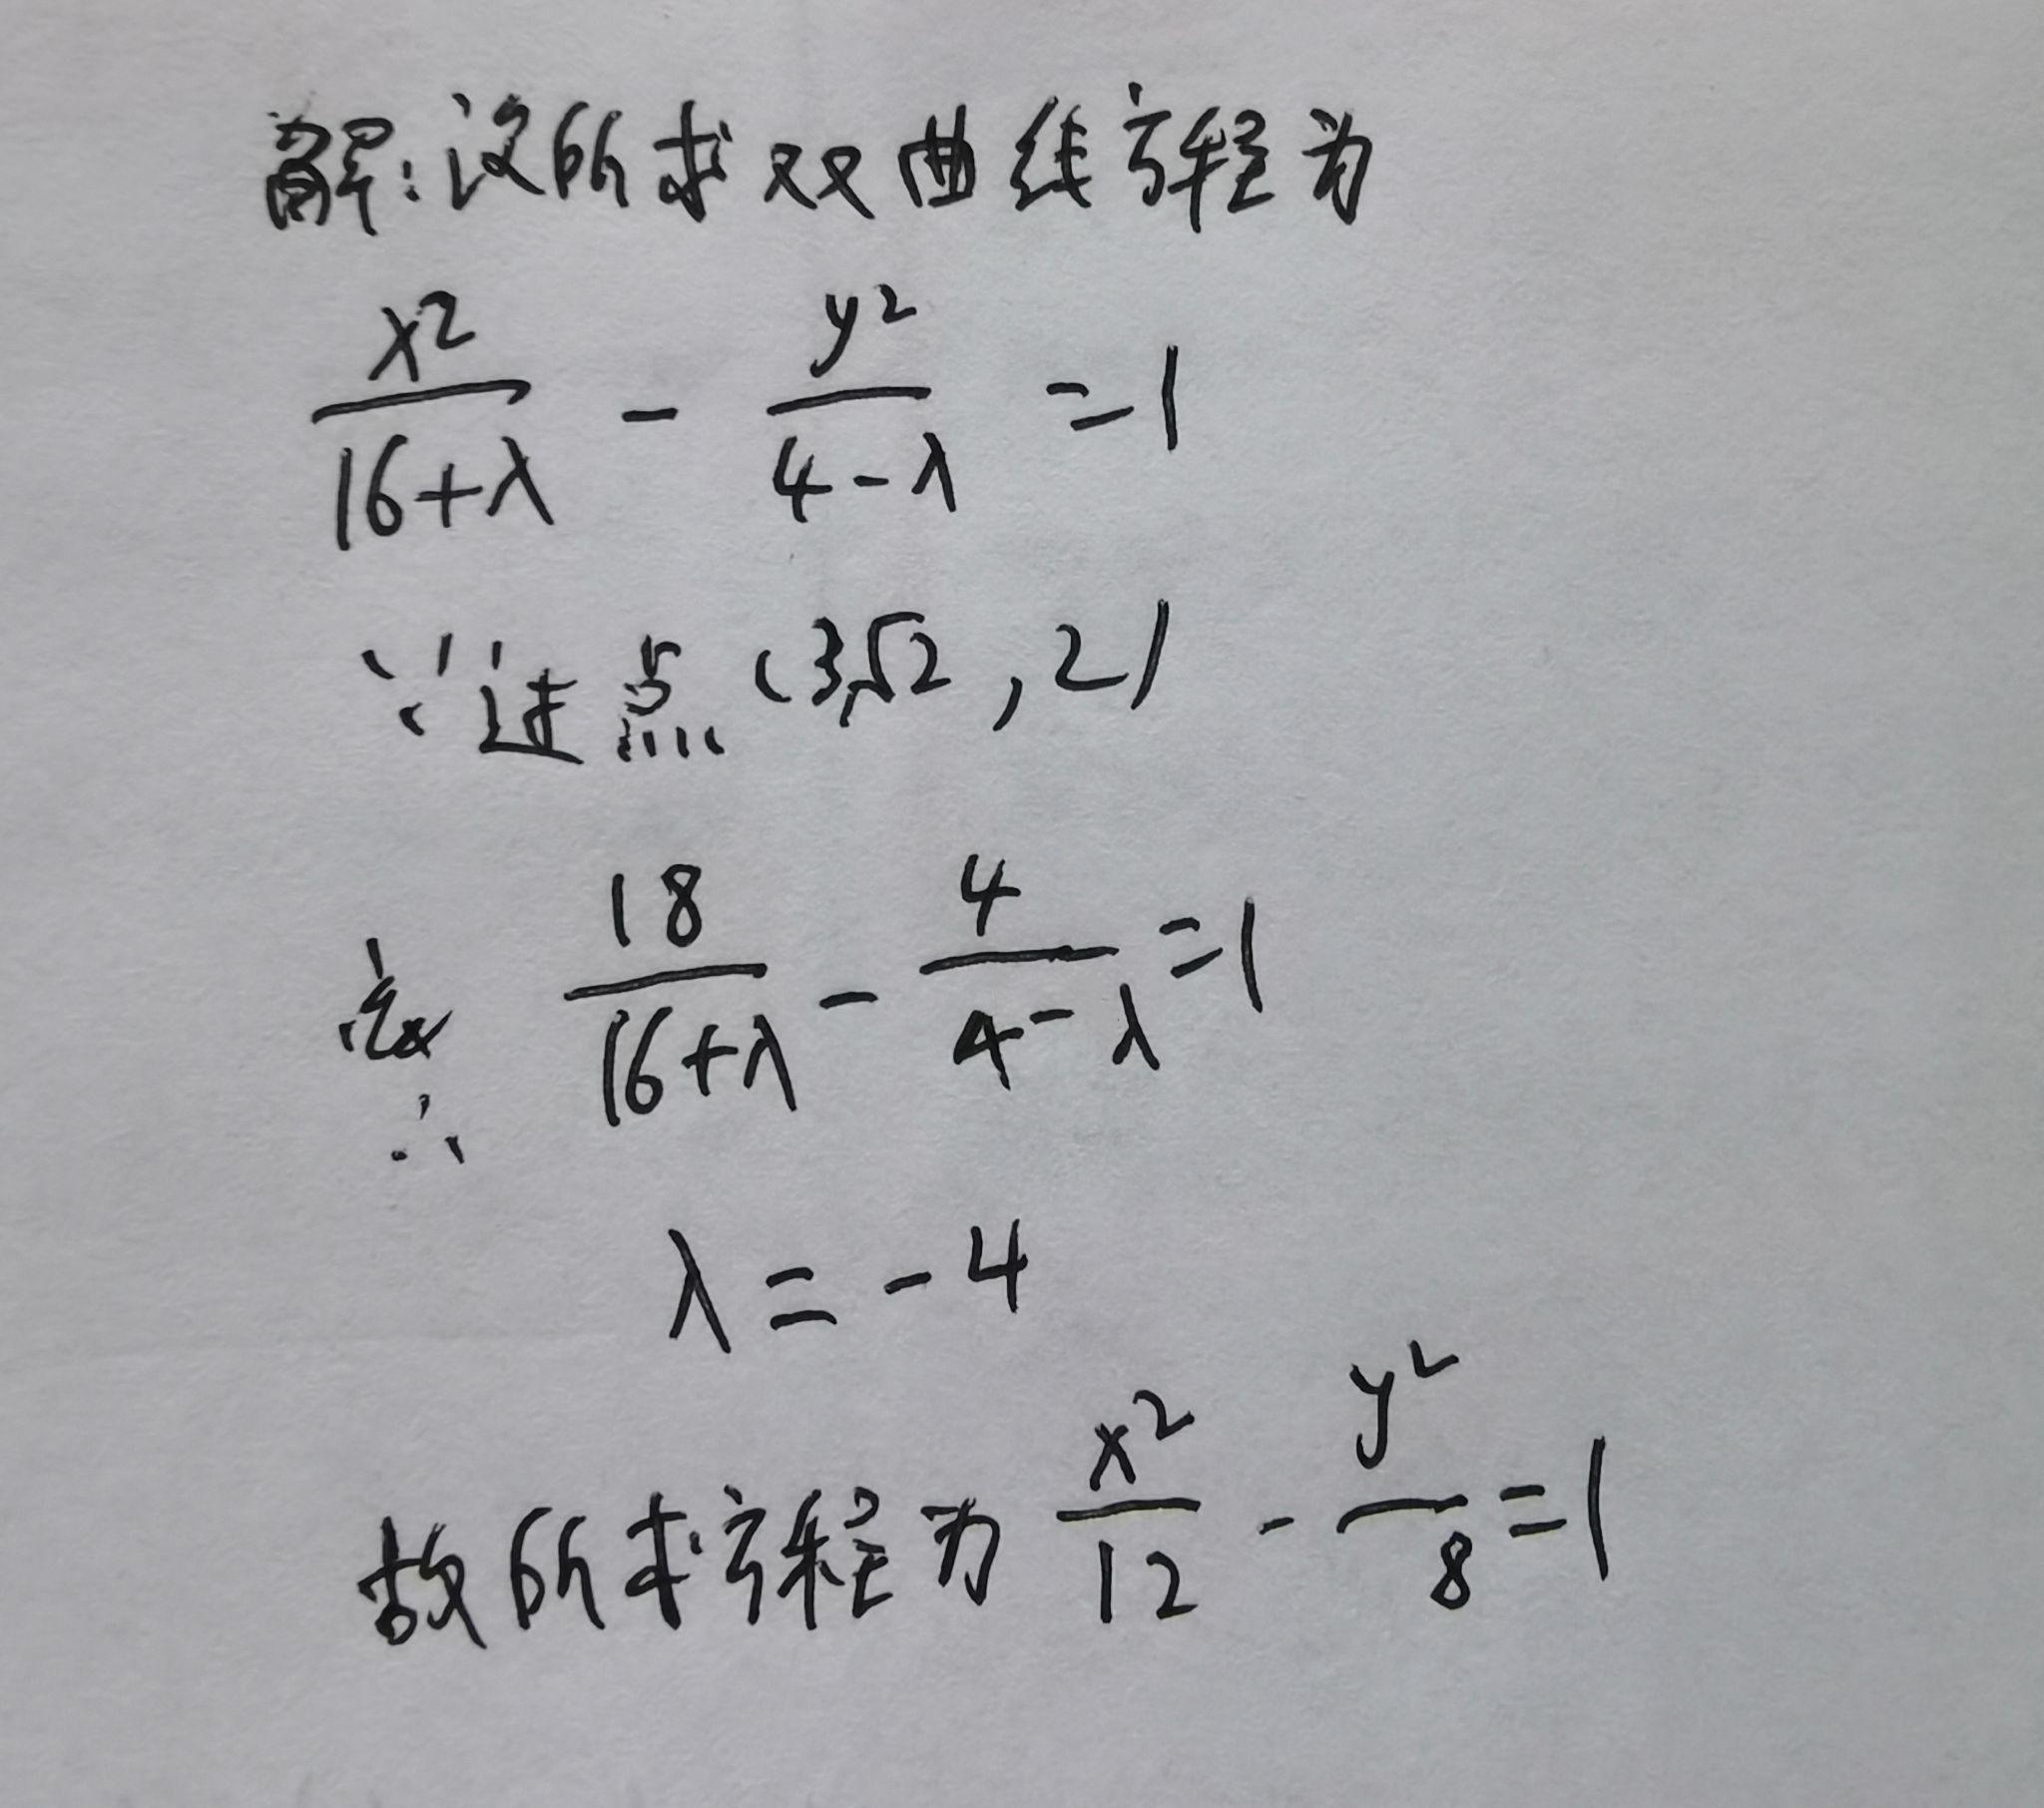 解:设所求双曲线方程为
x²/(16+λ) - y²/(4-λ) =1
∵过点(3√2,2)
故 18/(16+λ) - 4/(4-λ) =1
∴
λ=-4
故所求方程为 x²/12 - y²/8 =1